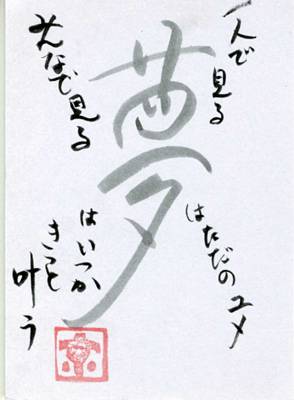 一人で見る
夢
はただのユメ
みんなで見る
はいつか
きっと
叶う